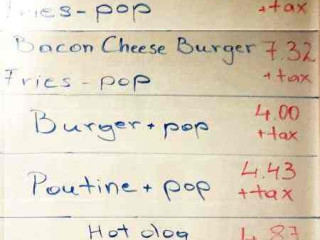 Fries - pop + tax
Bacon Cheese Burger 7.32
Fries - pop + tax
Burger + pop 4.00
+ tax
Poutine + pop 4.43
+ tax
Hot dog 4.87